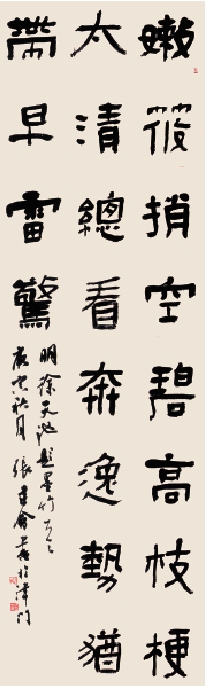 嫩筱捎空碧高枝梗
太清總看奔逸勢猶
帶早雷驚
明徐天池題墨竹
秋月張建會書於津門